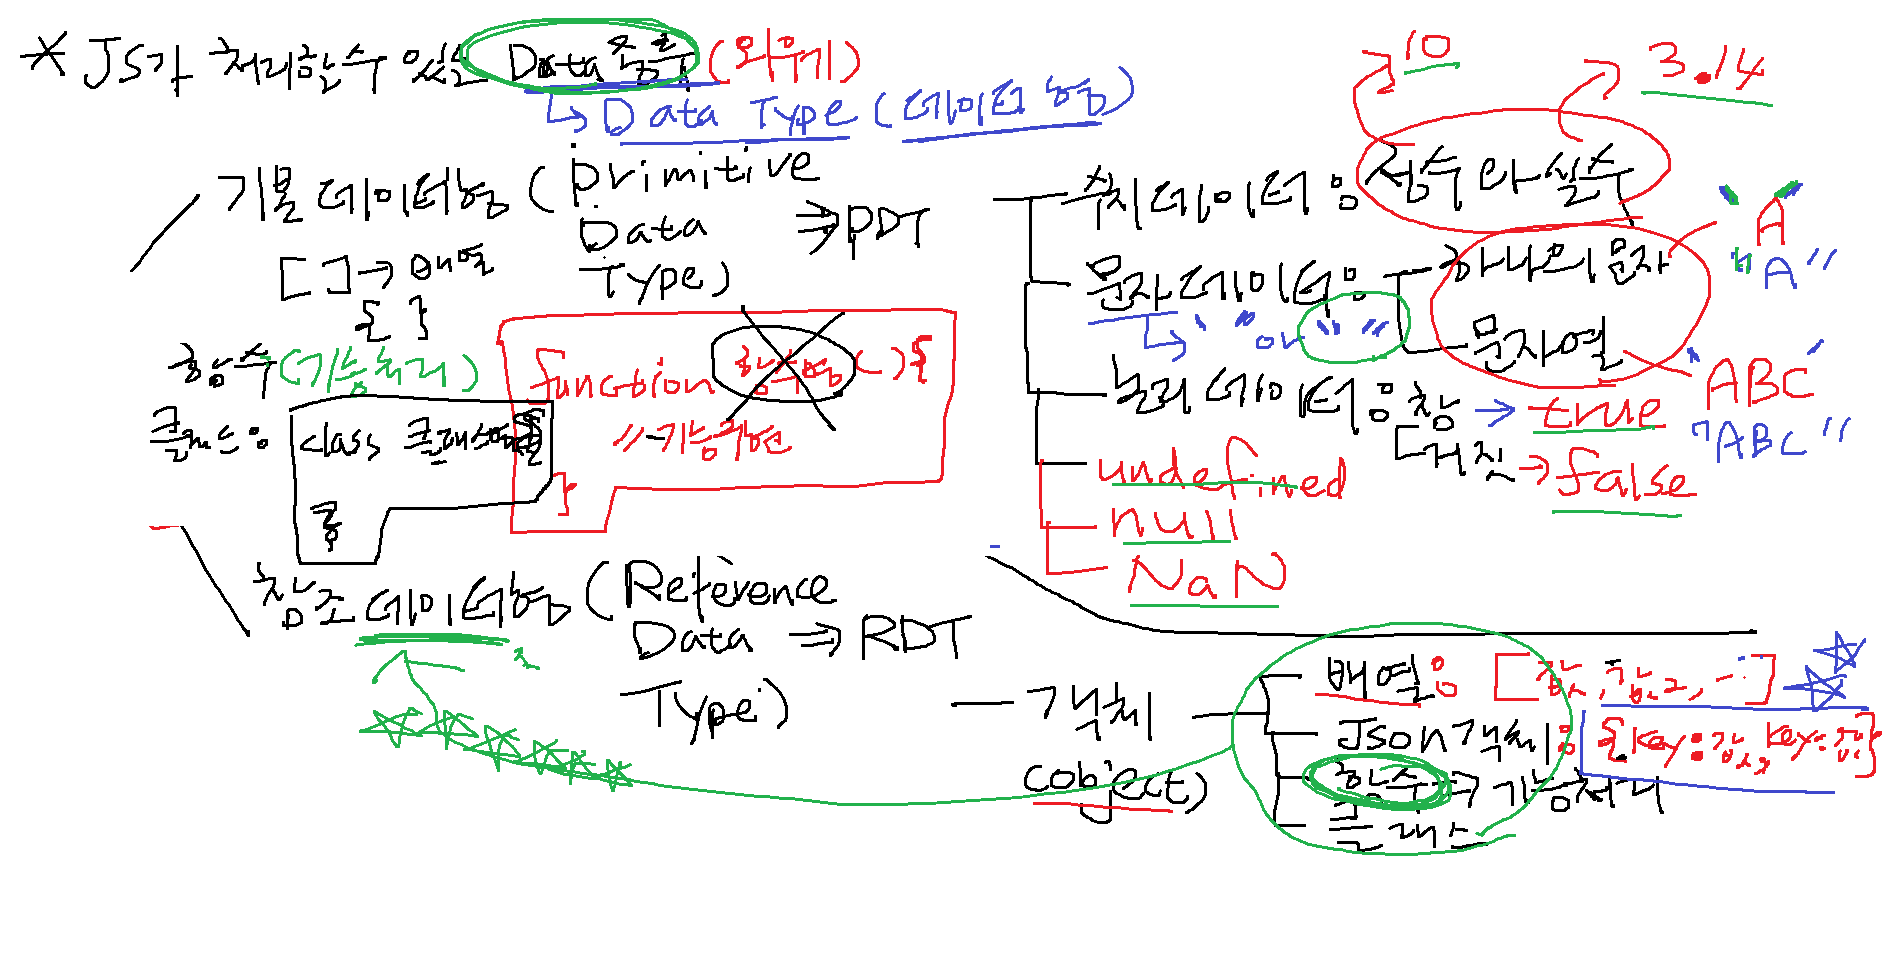 * JS가 처리할수 있는 Data 종류 (외우기)
↳ Data Type (데이터형)
10
3.14
기본 데이터형 (primitive Data Type) ⇒ PDT
[ ] → 배열
{ }
함수 (기능처리)
function 함수명 ( ) {
// 기능구현
}
클래스 : class 클래스명 {
}
수치데이터 : 정수와 실수
문자데이터 : 하나의 문자
'A'
"A"
' ' or " "
문자열
'ABC'
"ABC"
논리데이터 : 참 → true
거짓 → false
undefined
null
NaN
참조데이터형 (Reference Data Type) ⇒ RDT
객체 (object)
배열 : [값1, 값2, ...]
Json객체 : {key:값, key:값}
함수 → 기능처리
클래스